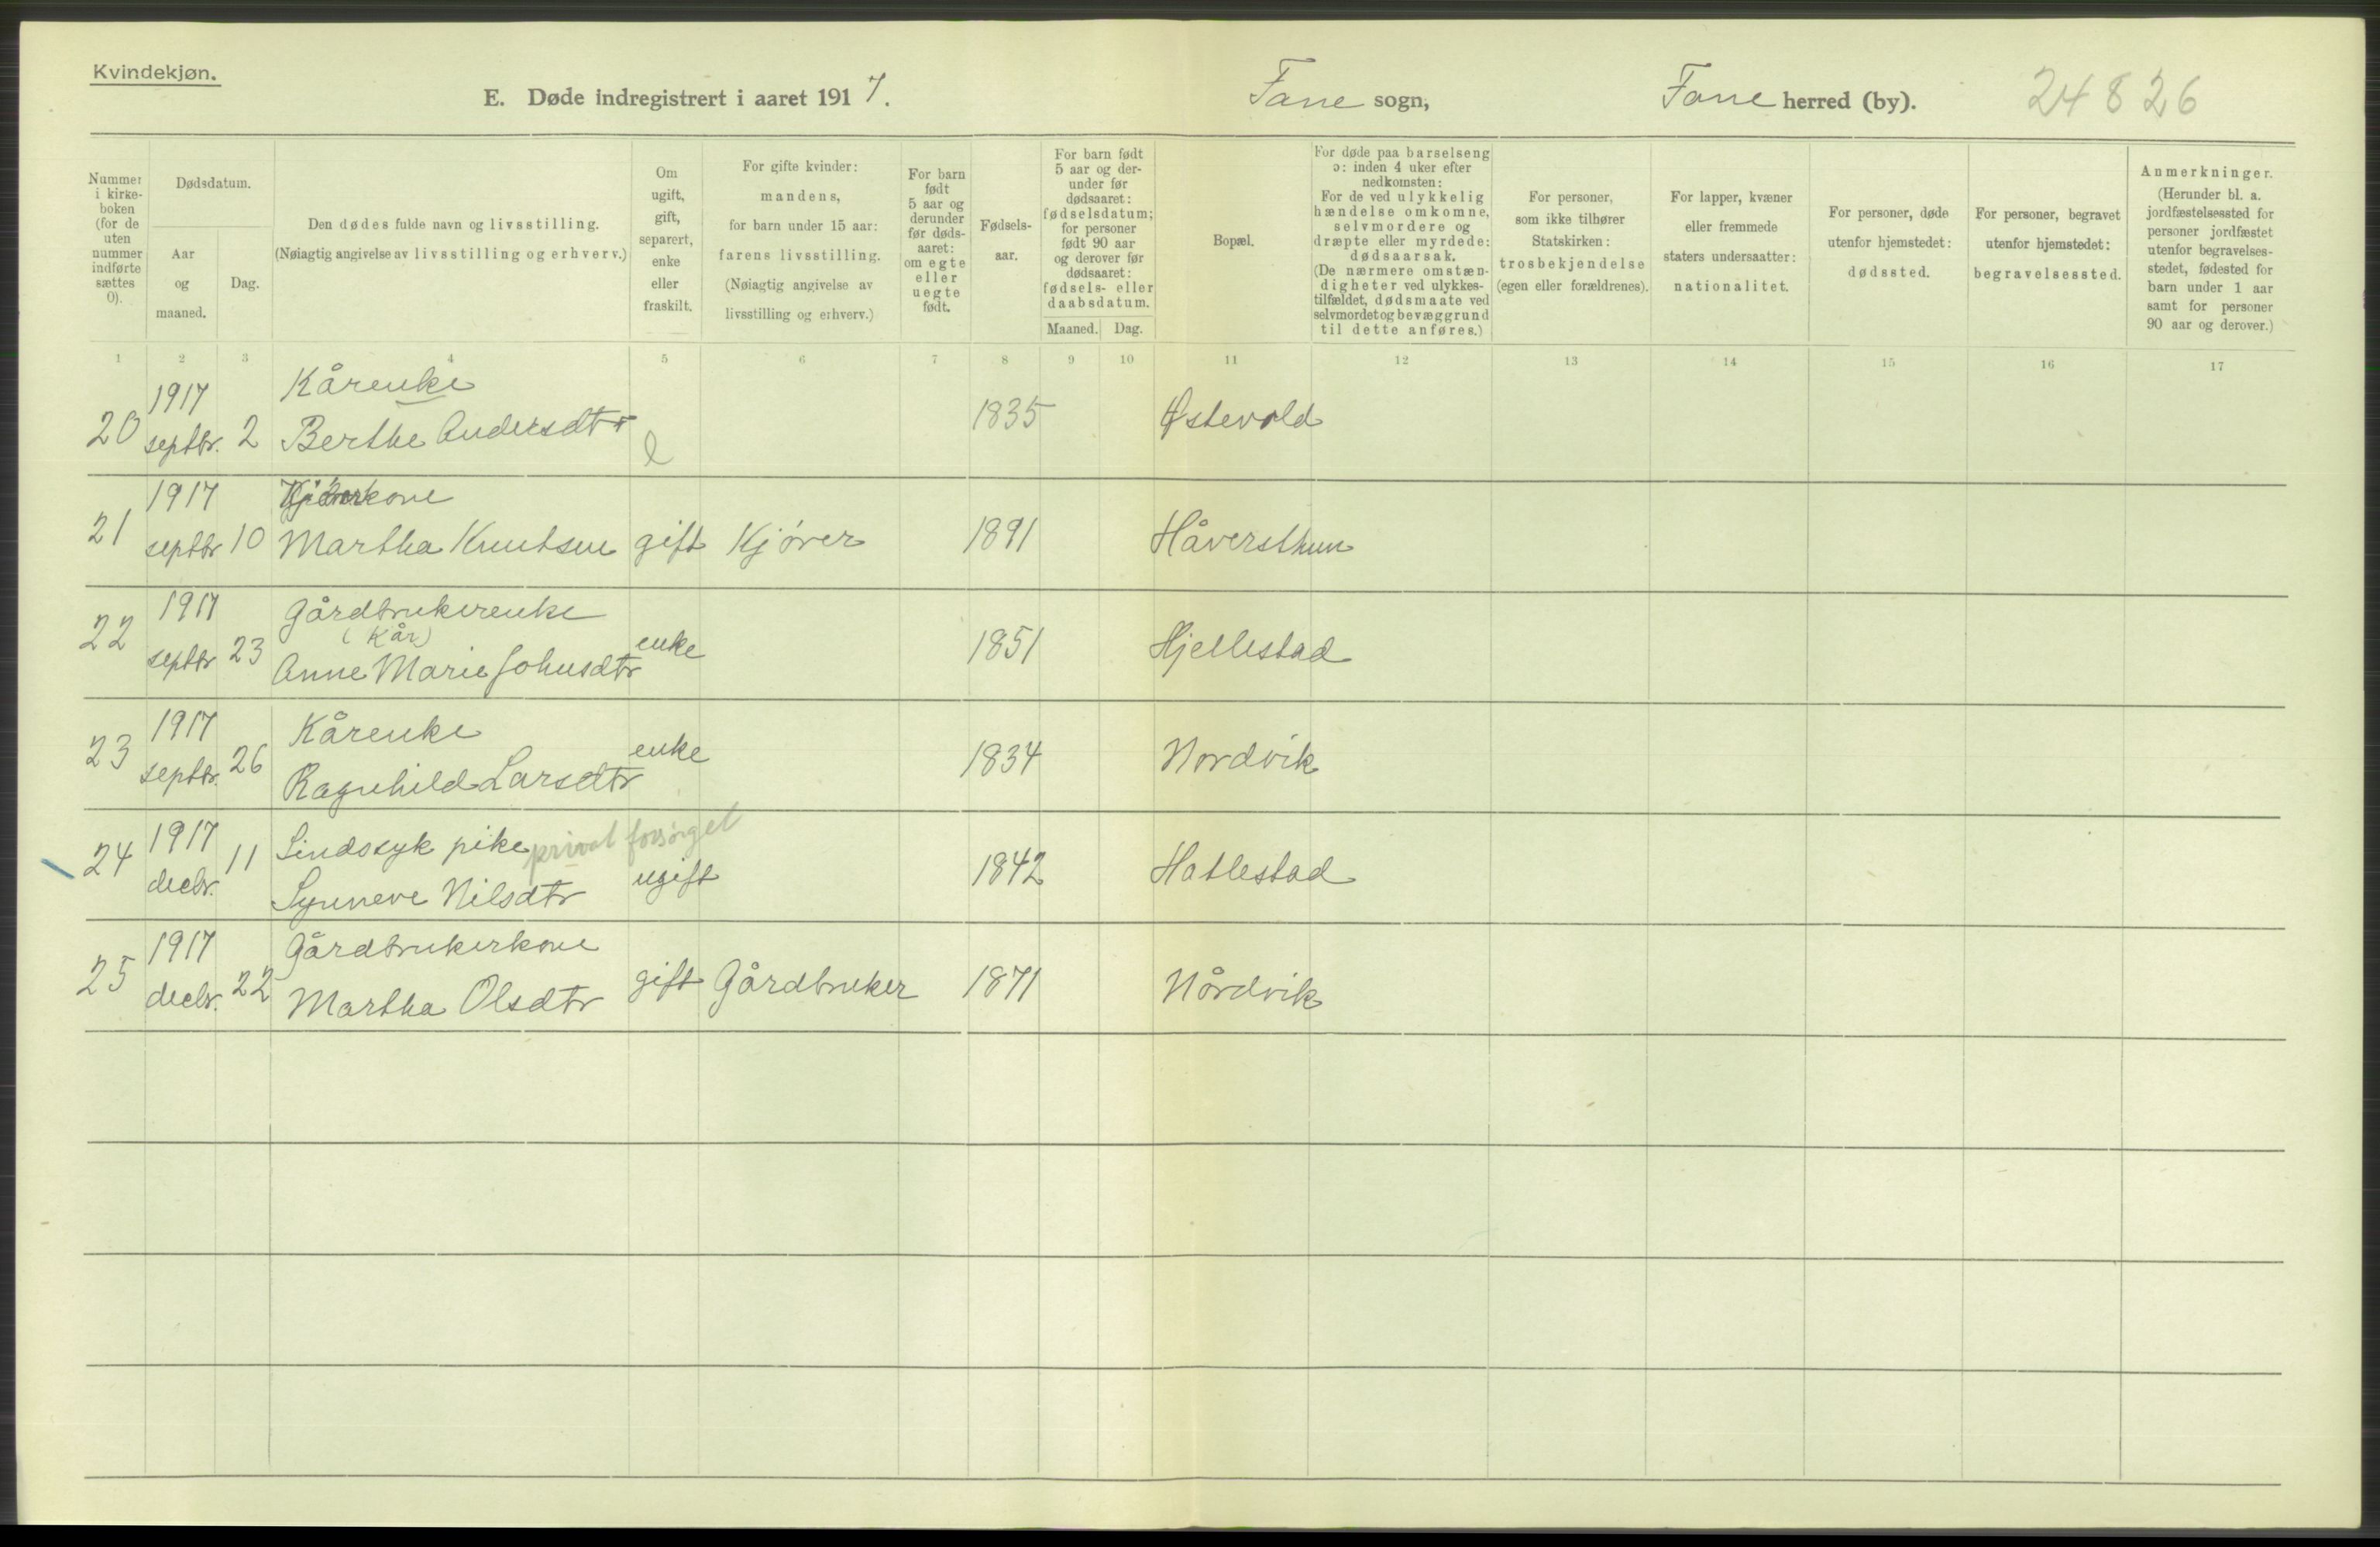 Kvindekjøn.
E. Døde indregistrert i aaret 1917.
Fane sogn,
Fane herred (by).
24826
Nummer i kirke-boken (for de uten nummer indførte sættes 0).
Dødsdatum.
Aar og maaned.
Dag.
Den dødes fulde navn og livsstilling.
(Nøiagtig angivelse av livsstilling og erhverv.)
Om ugift, gift, separert, enke eller fraskilt.
For gifte kvinder: mandens, for barn under 15 aar: farens livsstilling. (Nøiagtig angivelse av livsstilling og erhverv.)
For barn født 5 aar og derunder før døds-aaret: om egte eller uegte født.
Fødsels-aar.
For barn født 5 aar og der-under før dødsaaret: fødselsdatum; for personer født 90 aar og derover før dødsaaret: fødsels- eller daabsdatum.
Maaned. Dag.
Bopæl.
For døde paa barselseng ɔ: inden 4 uker efter nedkomsten: For de ved ulykkelig hændelse omkomne, selvmordere og dræpte eller myrdede: dødsaarsak. (De nærmere omstæn-digheter ved ulykkes-tilfældet, dødsmaate ved selvmordet og bevæggrund til dette anføres.)
For personer, som ikke tilhører Statskirken: trosbekjendelse (egen eller forældrenes).
For lapper, kvæner eller fremmede staters undersaatter: nationalitet.
For personer, døde utenfor hjemstedet: dødssted.
For personer, begravet utenfor hjemstedet: begravelsessted.
Anmerkninger. (Herunder bl. a. jordfæstelsessted for personer jordfæstet utenfor begravelses-stedet, fødested for barn under 1 aar samt for personer 90 aar og derover.)
1 2 3 4 5 6 7 8 9 10 11 12 13 14 15 16 17
1917 Kårenke
20 septbr. 2 Berthe Andersdtr e 1835 Østevold
1917
21 septbr 10 Martha Knutsen gift Kjører 1891 Håversthun
1917 Gårdbrukerenke
(Kår)
22 septbr 23 Anne Marie Johnsdtr enke 1851 Hjellestad
1917 Kårenke
23 septbr. 26 Ragnhild Larsdtr enke 1834 Nordvik
1917 Sindssyk pike privat forsørget
24 decbr. 11 Synneve Nilsdtr ugift 1842 Hatlestad
1917 Gårdbrukerkone
25 decbr. 22 Martha Olsdtr gift Gårdbruker 1871 Nårdvik